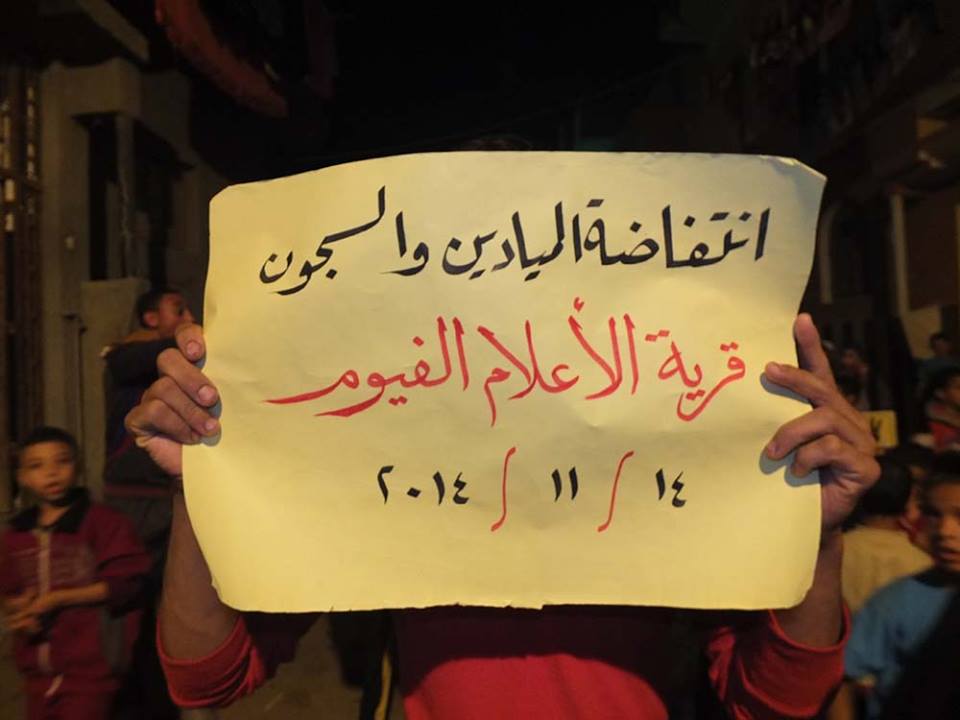 انتفاضة الميادين والسجون
قرية الأعلام الفيوم
١٤ / ١١ / ٢٠١٤